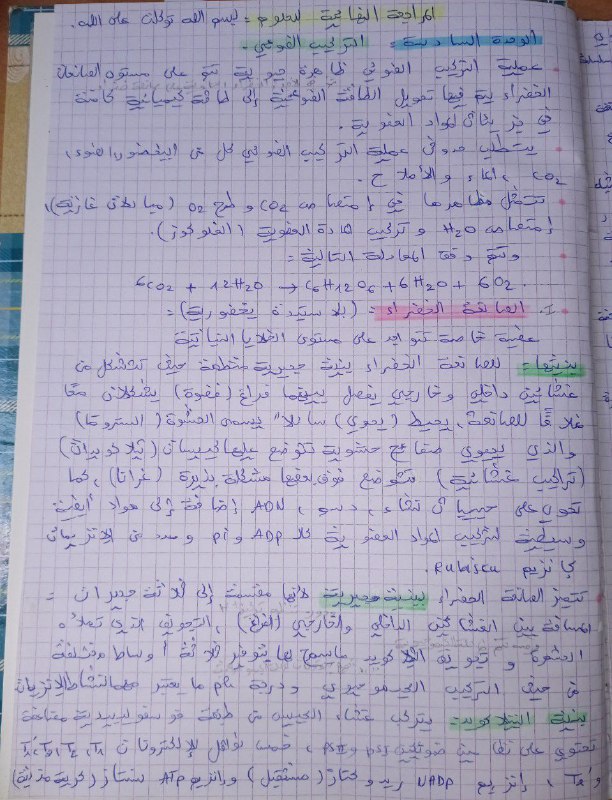 المراجعة النهائية للعلوم = بسم الله توكلت على الله.
الوحدة السادسة = التركيب الضوئي.
عملية التركيب الضوئي ظاهرة حيوية تتم على مستوى الصانعات
الخضراء يتم فيها تحويل الطاقة الضوئية إلى طاقة كيميائية كامنة
في جزيئات المواد العضوية.
يتطلب حدوث عملية التركيب الضوئي كل من اليخضور، الضوء،
CO2، الماء والأملاح.
تتمثل مظاهرها في إمتصاص CO2 و طرح O2 (مبادلات غازية)،
إمتصاص H2O و تركيب المادة العضوية (الغلوكوز).
وتتم وفق المعادلة التالية =
6CO2 + 12H2O → C6H12O6 + 6H2O + 6O2
I. الصانعة الخضراء = (بلاستيدة يخضورية) =
عضية خاصة تتواجد على مستوى الخلايا النباتية
بنيتها = للصانعة الخضراء بنية حجيرية منتظمة حيث تتشكل من
غشائين داخلي و خارجي يفصل بينهما فراغ (فضوة) يشكلان معًا
غلافًا للصانعة، يحيط (يحوي) سائلا يسمى الحشوة (الستروما)
والذي يحوي صفائح حشوية تتوضع عليها كييسات (تيلاكويدات)
(تراكيب غشائية) تتوضع فوق بعضها مشكلة بذيرة (غرانا)، كما
تحوي على حبيبات نشاء، دسم، ADN إضافة إلى مواد أيضية
وسيطية لتركيب المواد العضوية كالـ ADP و Pi و عدد من الانزيمات
كإنزيم Rubisco.
تتميز الصانعة الخضراء ببنية حجيرية لأنها مقسمة إلى ثلاثة حجيرات =
المسافة بين الغشائين الداخلي والخارجي (الفراغ)، التجويف الذي تملأه
الحشوة و تجويف التلاكويد مايسمح لها بتوفير ثلاثة أوساط مختلفة
من حيث التركيب الكيموحيوي و درجة pH ما يعتبر مهما لنشاط الانزيمات
بنية التيلاكويد = يتركب غشاء الكييس من طبقة فوسفوليبيدية مضاعفة
تحتوي على نظامين ضوئيين PSI و PSII، خمس نواقل للإلكترونات T1، T2، T3، T'1
و T'2، إنزيم NADP ريدوكتاز (مستقبل) و إنزيم ATP سنتاز (كرية مذنبة)